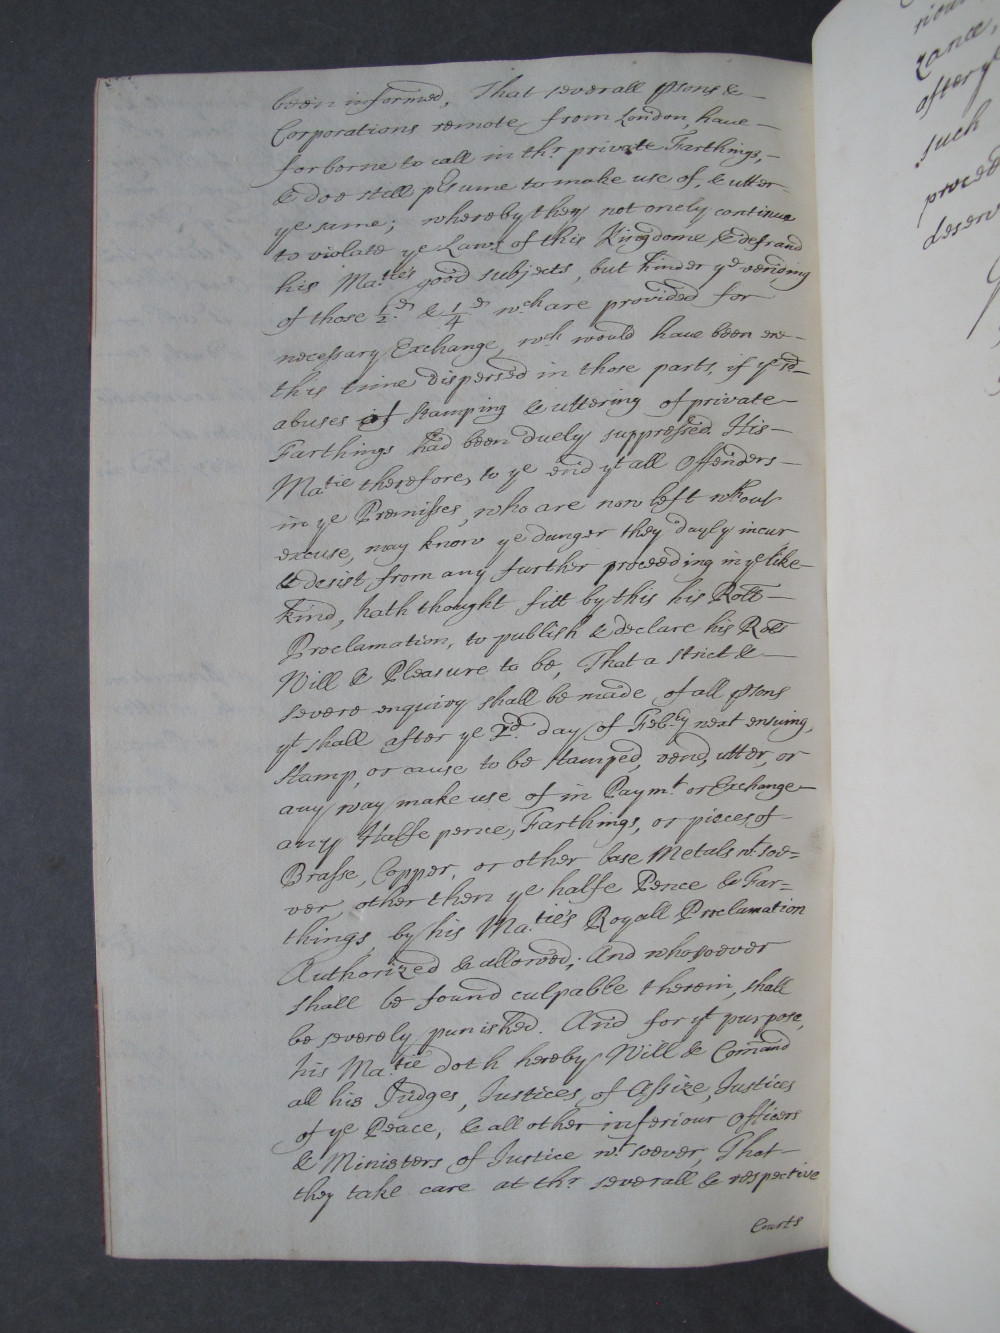 been informed, That severall psons &
Corporations remote from London, have
forborne to call in thr. private Farthings,
& doe still psume to make use of, & utter
ye same; whereby they not onely continue
to violate ye Laws of this Kingdome, & defraud
his Ma:ties good subjects, but hinder ye vending
of those ½ds & ¼ds wch are provided for
necessary Exchange, wch would have been ere
this time dispersed in those parts, if ye sd
abuses of stamping & uttering of private
Farthings had been duely suppressed. His
Ma:tie therefore, to ye end yt all Offenders
in ye Premisses, who are now left wthout
excuse, may know ye danger they dayly incur
& desist from any further proceeding in ye like
kind, hath thought fitt by this his Roll
Proclamation, to publish & declare his Roll
Will & Pleasure to be, That a strict &
severe enquiry shall be made of all psons
yt shall after ye 2d. day of Feb:ry next ensuing,
stamp, or cause to be stamped, vend, utter, or
any way make use of in Paymt. or Exchange
any Halfe pence, Farthings, or pieces of
Brasse, Copper, or other base Metals wt. soe=
ver, other then ye halfe Pence & Far=
things, by his Ma:tie's Royall Proclamation
Authorized & allowed; And whosoever
shall be found culpable therein, shall
be severely punished. And for yt purpose,
his Ma:tie doth hereby Will & Comand
all his Judges, Justices of Assize, Justices
of ye Peace, & all other inferiour Officers
& Ministers of Justice wt. soever, That
they take care at thr. severall & respective
Courts
zance,
after ye
such
proceed
deserv